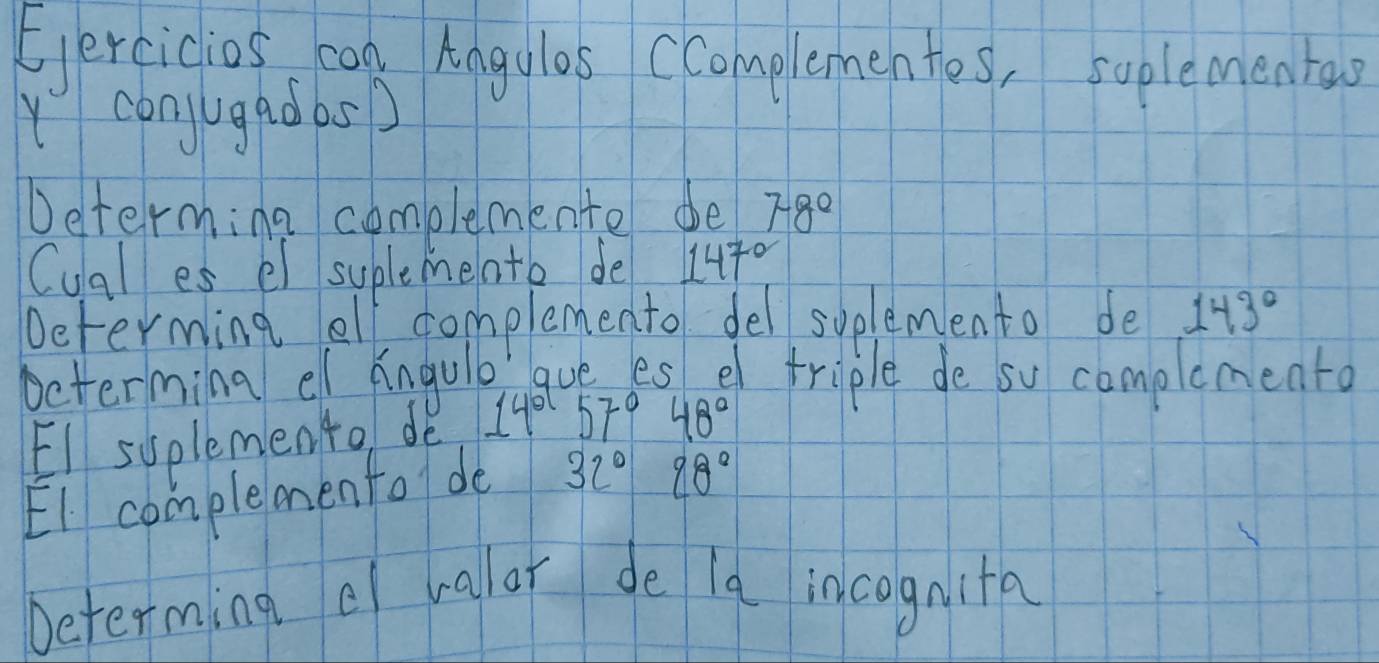 Ejercicios con Angulos (Complementos, suplementos
y conjugados)
Determina complemente de 78°
Cual es el suplemento de 147°
Determina el complemento del suplemento de 143°
Determina el ángulo que es el triple de su complemento
El suplemento de 14° 57° 48°
El complemento de 32° 28°
Determina el valor de la incognita